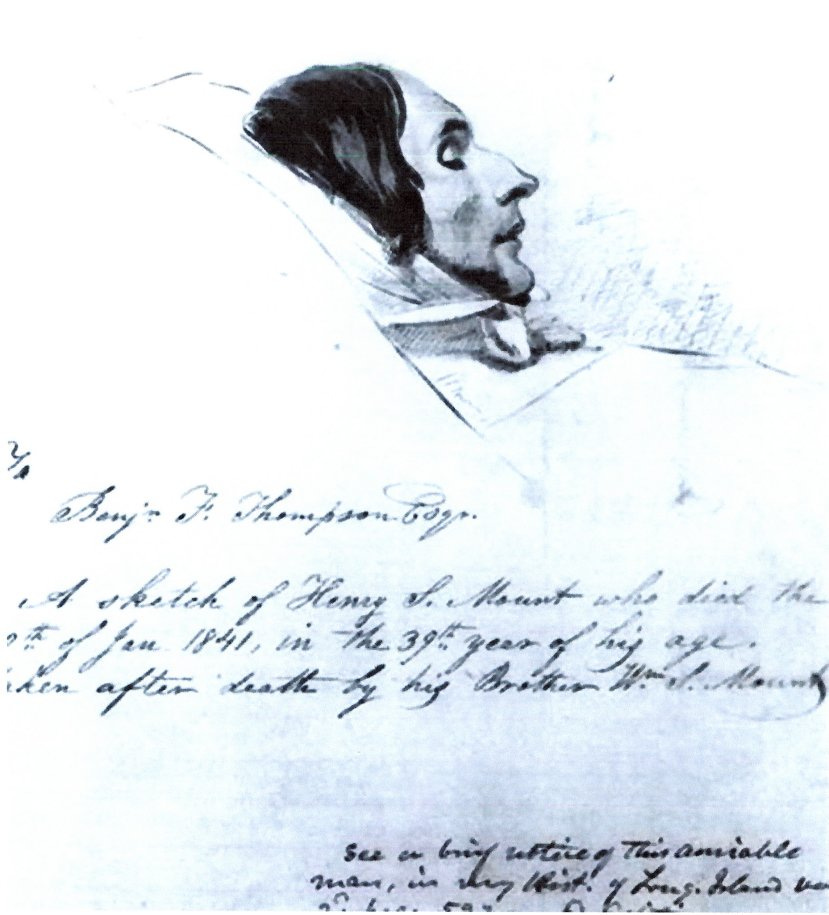 Benjn F. Thompson Esqr.
A sketch of Henry S. Mount who died the
th of Jan 1841, in the 39th year of his age.
aken after death by his Brother Wm S. Mount
See a brief notice of this amiable
man, in my Hist. of Long. Island